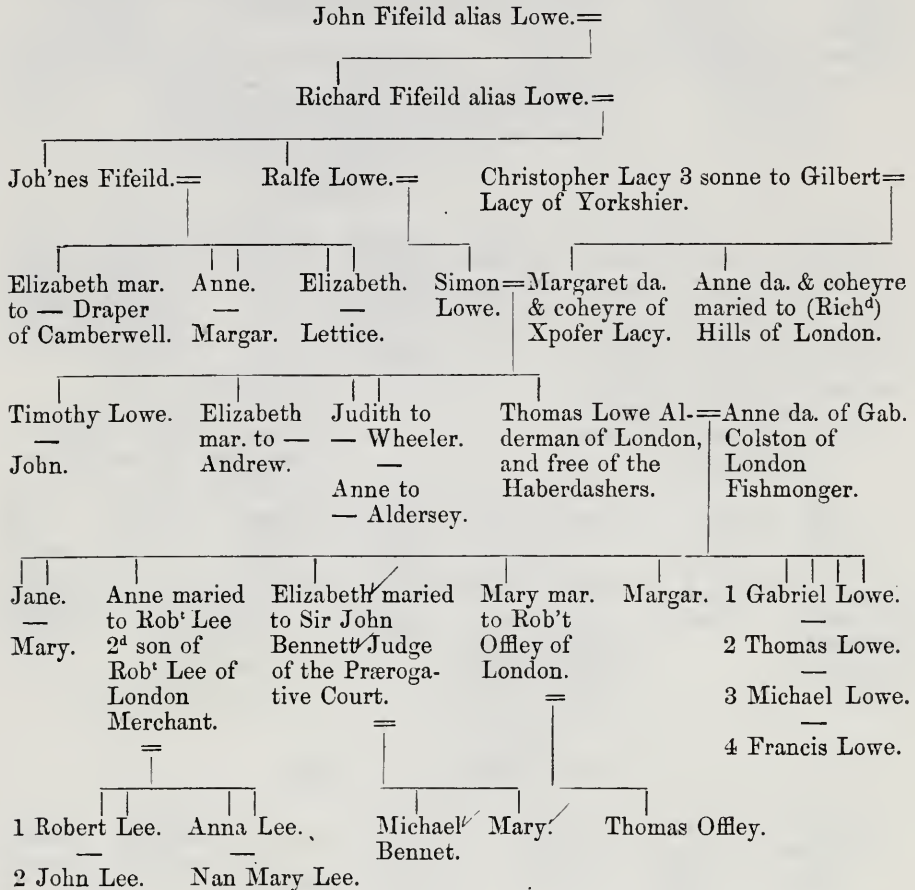 John Fifeild alias Lowe.=
Richard Fifeild alias Lowe.=
Joh'nes Fifeild.=
Ralfe Lowe.=
Christopher Lacy 3 sonne to Gilbert=
Lacy of Yorkshier.
Elizabeth mar.
to — Draper
of Camberwell.
Anne.
—
Margar.
Elizabeth.
—
Lettice.
Simon=
Lowe.
Margaret da.
& coheyre of
Xpofer Lacy.
Anne da. & coheyre
maried to (Richᵈ)
Hills of London.
Timothy Lowe.
—
John.
Elizabeth
mar. to —
Andrew.
Judith to
— Wheeler.
—
Anne to
— Aldersey.
Thomas Lowe Al-=
derman of London,
and free of the
Haberdashers.
Anne da. of Gab.
Colston of
London
Fishmonger.
Jane.
—
Mary.
Anne maried
to Robᵗ Lee
2ᵈ son of
Robᵗ Lee of
London
Merchant.
=
Elizabeth maried
to Sir John
Bennett Judge
of the Præroga-
tive Court.
=
Mary mar.
to Rob't
Offley of
London.
=
Margar.
1 Gabriel Lowe.
—
2 Thomas Lowe.
—
3 Michael Lowe.
—
4 Francis Lowe.
1 Robert Lee.
—
2 John Lee.
Anna Lee.
—
Nan Mary Lee.
Michael
Bennet.
Mary.
Thomas Offley.